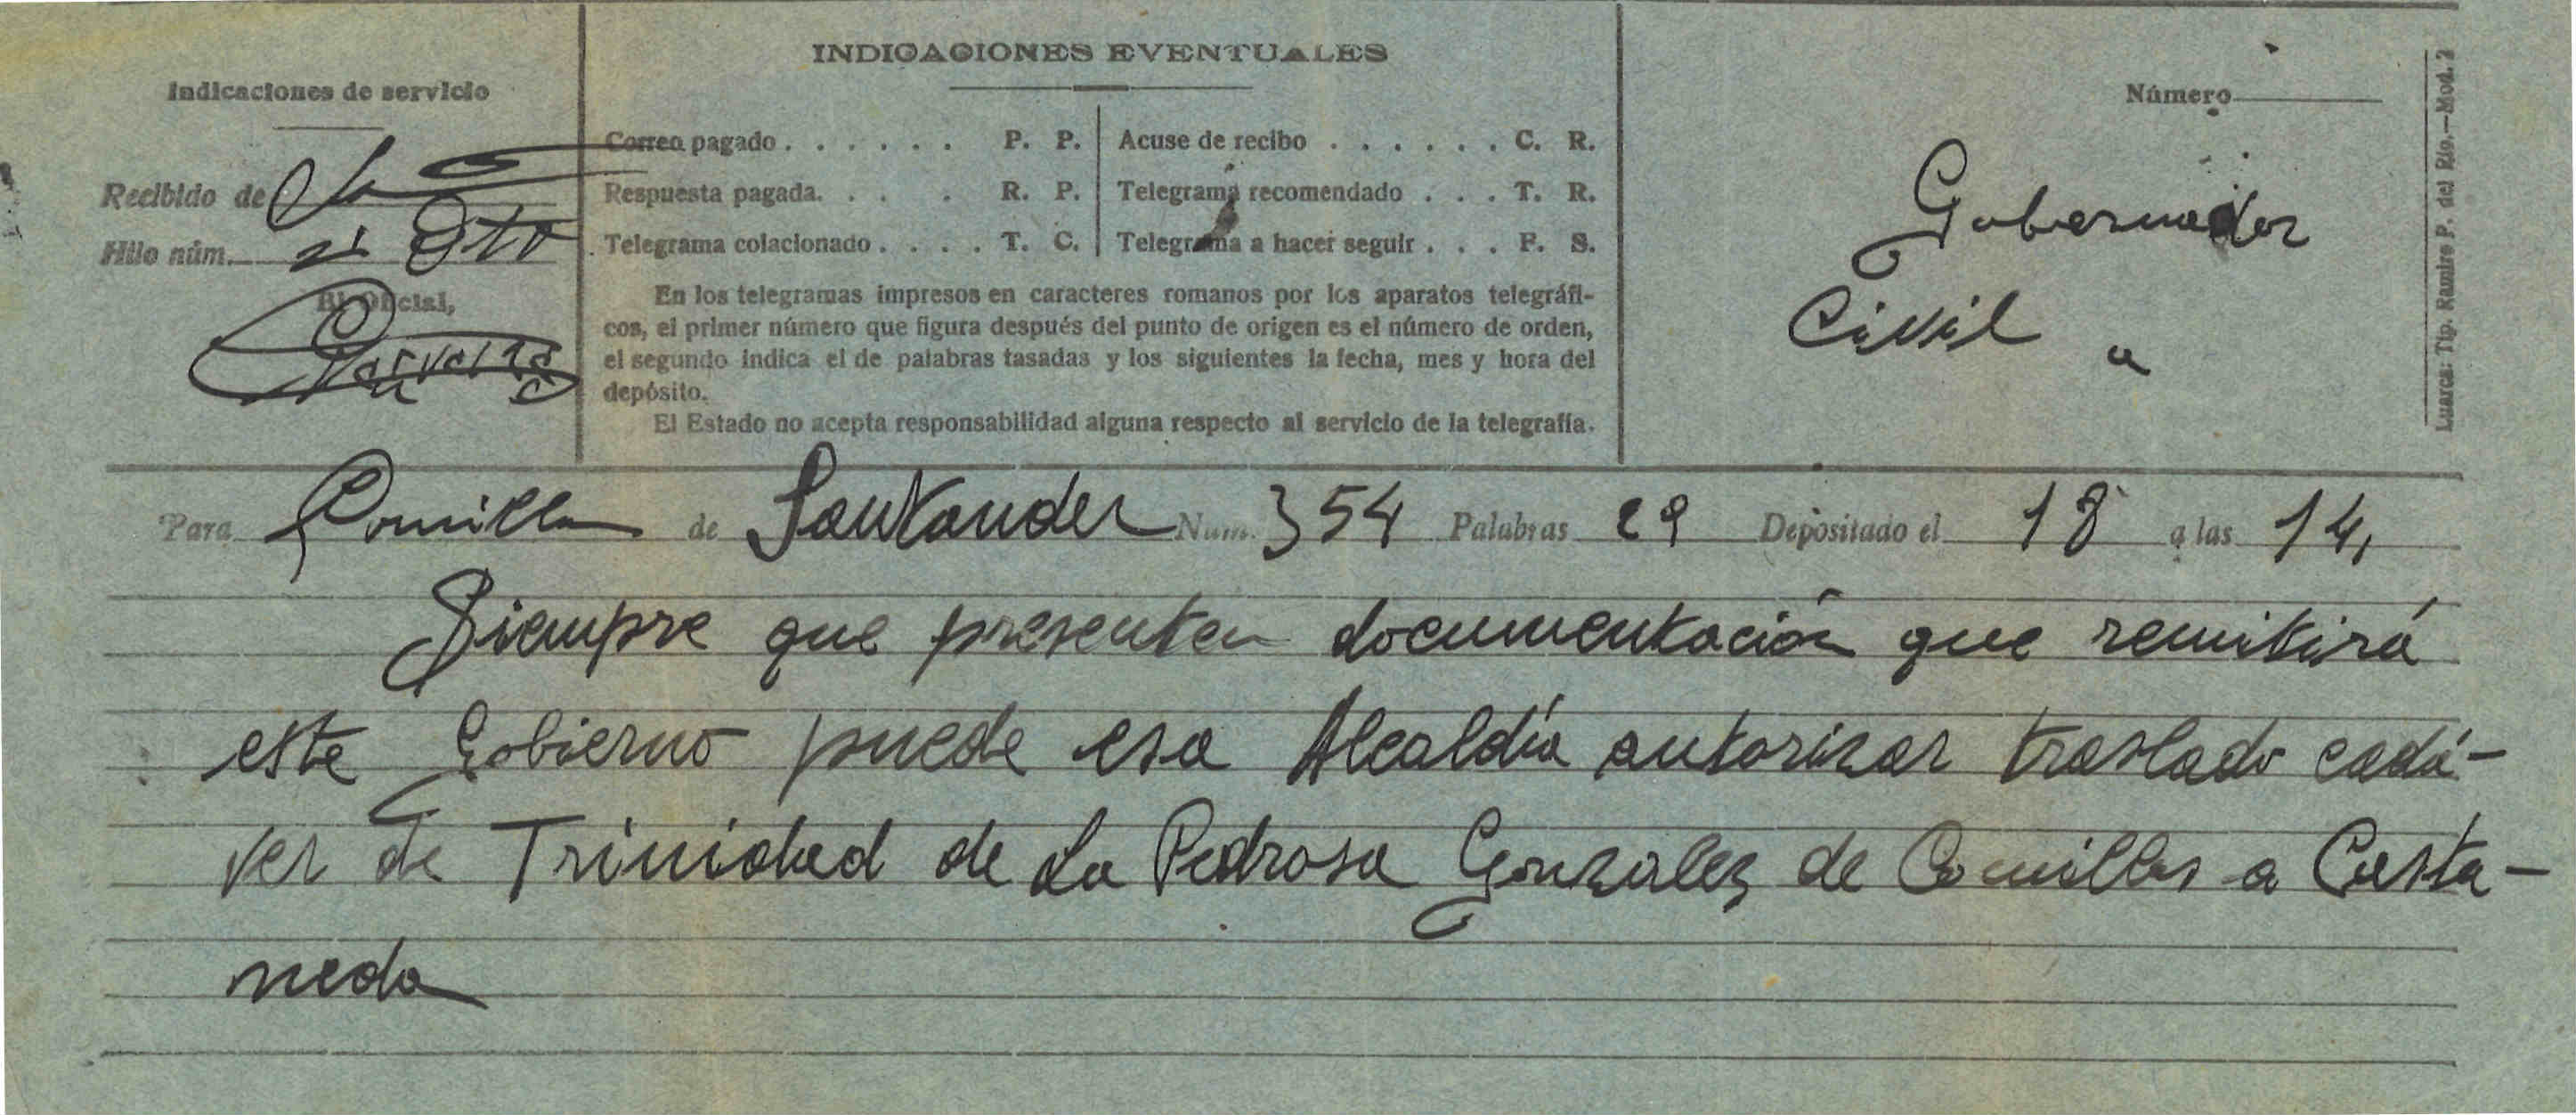 Indicaciones de servicio
Recibido de
Hilo núm.
El Oficial,
INDICACIONES EVENTUALES
Correo pagado . . . . . . P. P.
Respuesta pagada. . . . R. P.
Telegrama colacionado . . . . T. C.
Acuse de recibo . . . . . . C. R.
Telegrama recomendado . . . T. R.
Telegrama a hacer seguir . . . F. S.
En los telegramas impresos en caracteres romanos por los aparatos telegráfi-
cos, el primer número que figura después del punto de origen es el número de orden,
el segundo indica el de palabras tasadas y los siguientes la fecha, mes y hora del
depósito.
El Estado no acepta responsabilidad alguna respecto al servicio de la telegrafía.
Número
Gobernador
Civil a
Luarca: Tip. Ramiro P. del Río.—Mod. 2
Para Comillas de Santander Núm. 354 Palabras 29 Depositado el 18 a las 14,
Siempre que presenten documentación que remitirá
este Gobierno puede esa Alcaldía autorizar traslado cadá-
ver de Trinidad de La Pedrosa Gonzalez de Comillas a Casta-
neda